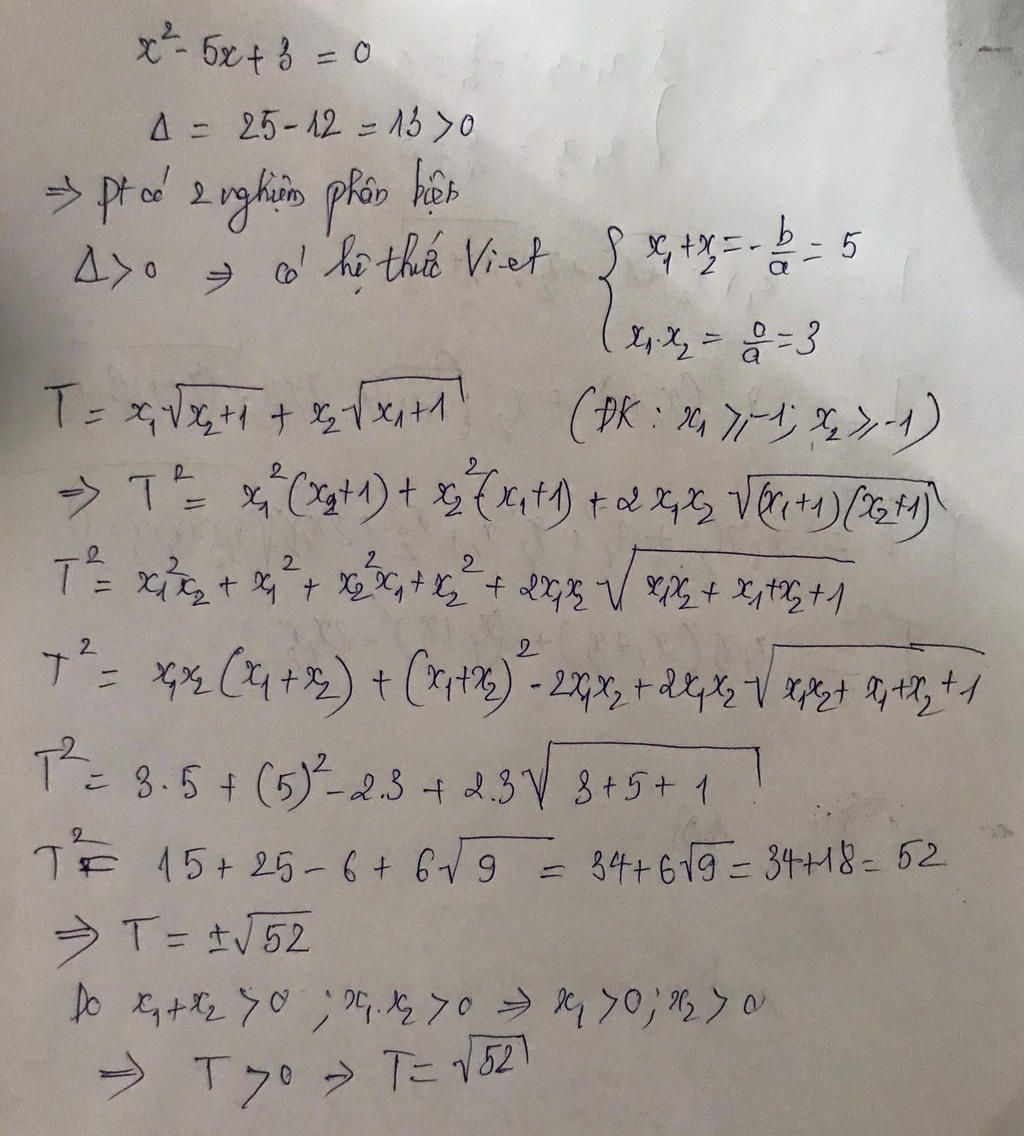 x² - 5x + 3 = 0
Δ = 25 - 12 = 13 > 0
⇒ pt có 2 nghiệm phân biệt
Δ > 0 ⇒ có hệ thức Viet { x₁ + x₂ = -b/a = 5
x₁.x₂ = c/a = 3
T = x₁√(x₂+1) + x₂√(x₁+1) (ĐK : x₁ ≥ -1; x₂ ≥ -1)
⇒ T² = x₁²(x₂+1) + x₂²(x₁+1) + 2x₁x₂√((x₁+1)(x₂+1))
T² = x₁²x₂ + x₁² + x₂²x₁ + x₂² + 2x₁x₂√(x₁x₂ + x₁+x₂+1)
T² = x₁x₂(x₁+x₂) + (x₁+x₂)² - 2x₁x₂ + 2x₁x₂√(x₁x₂ + x₁+x₂+1)
T² = 3.5 + (5)² - 2.3 + 2.3√(3+5+1)
T² = 15 + 25 - 6 + 6√9 = 34 + 6√9 = 34+18 = 52
⇒ T = ±√52
Do x₁+x₂ > 0 ; x₁.x₂ > 0 ⇒ x₁ > 0; x₂ > 0
⇒ T > 0 ⇒ T = √52